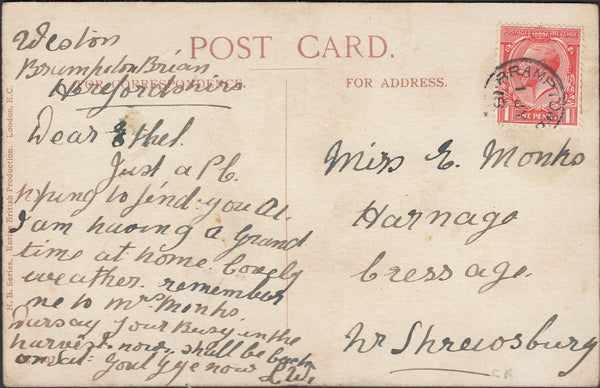 Weston
Brampton Brian
Herefordshire
POST CARD.
FOR CORRESPONDENCE.
FOR ADDRESS.
Dear Ethel.
Just a P.C.
hoping to find you A1.
I am having a grand
time at home lovely
weather. remember
me to Mrs Monks.
Daresay your Busy in the
harvest now. shall be back
on Sat. Goodbye now L.W.
Miss E. Monks
Harnage
Cressage.
Nr Shrewsbury
POSTAGE REVENUE
ONE PENNY
H. B. Series. Entire British Production. London, E.C.